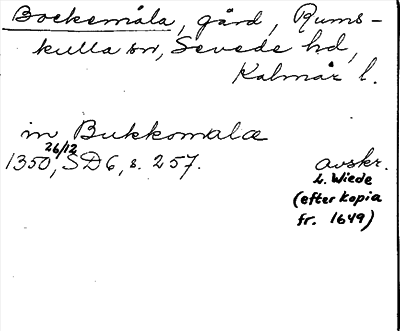 Bockemåla, gård, Rums-
kulla sn, Sevede hd,
Kalmar l.
in Bukkomala
26/12
1350, SD 6, s. 257. avskr.
L. Wiede
(efter kopia
fr. 1649)